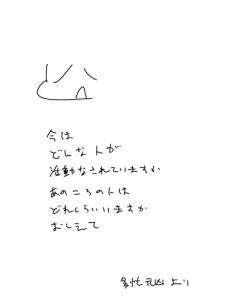 今は
どんな人が
活動なされていますか
あのころの人は
どれくらいいますか
おしえて
より